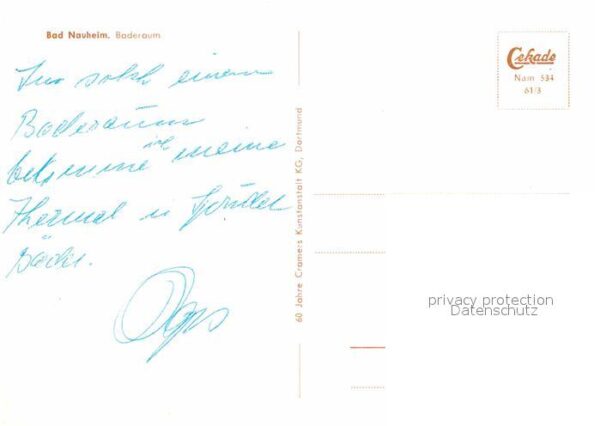 Bad Nauheim. Baderaum
In solch einem
Baderaum
bekomme ich meine
Thermal u. Sprudel
Bäder.
60 Jahre Cramers Kunstanstalt KG, Dortmund
Cekade
Nam 534
61/3
privacy protection
Datenschutz